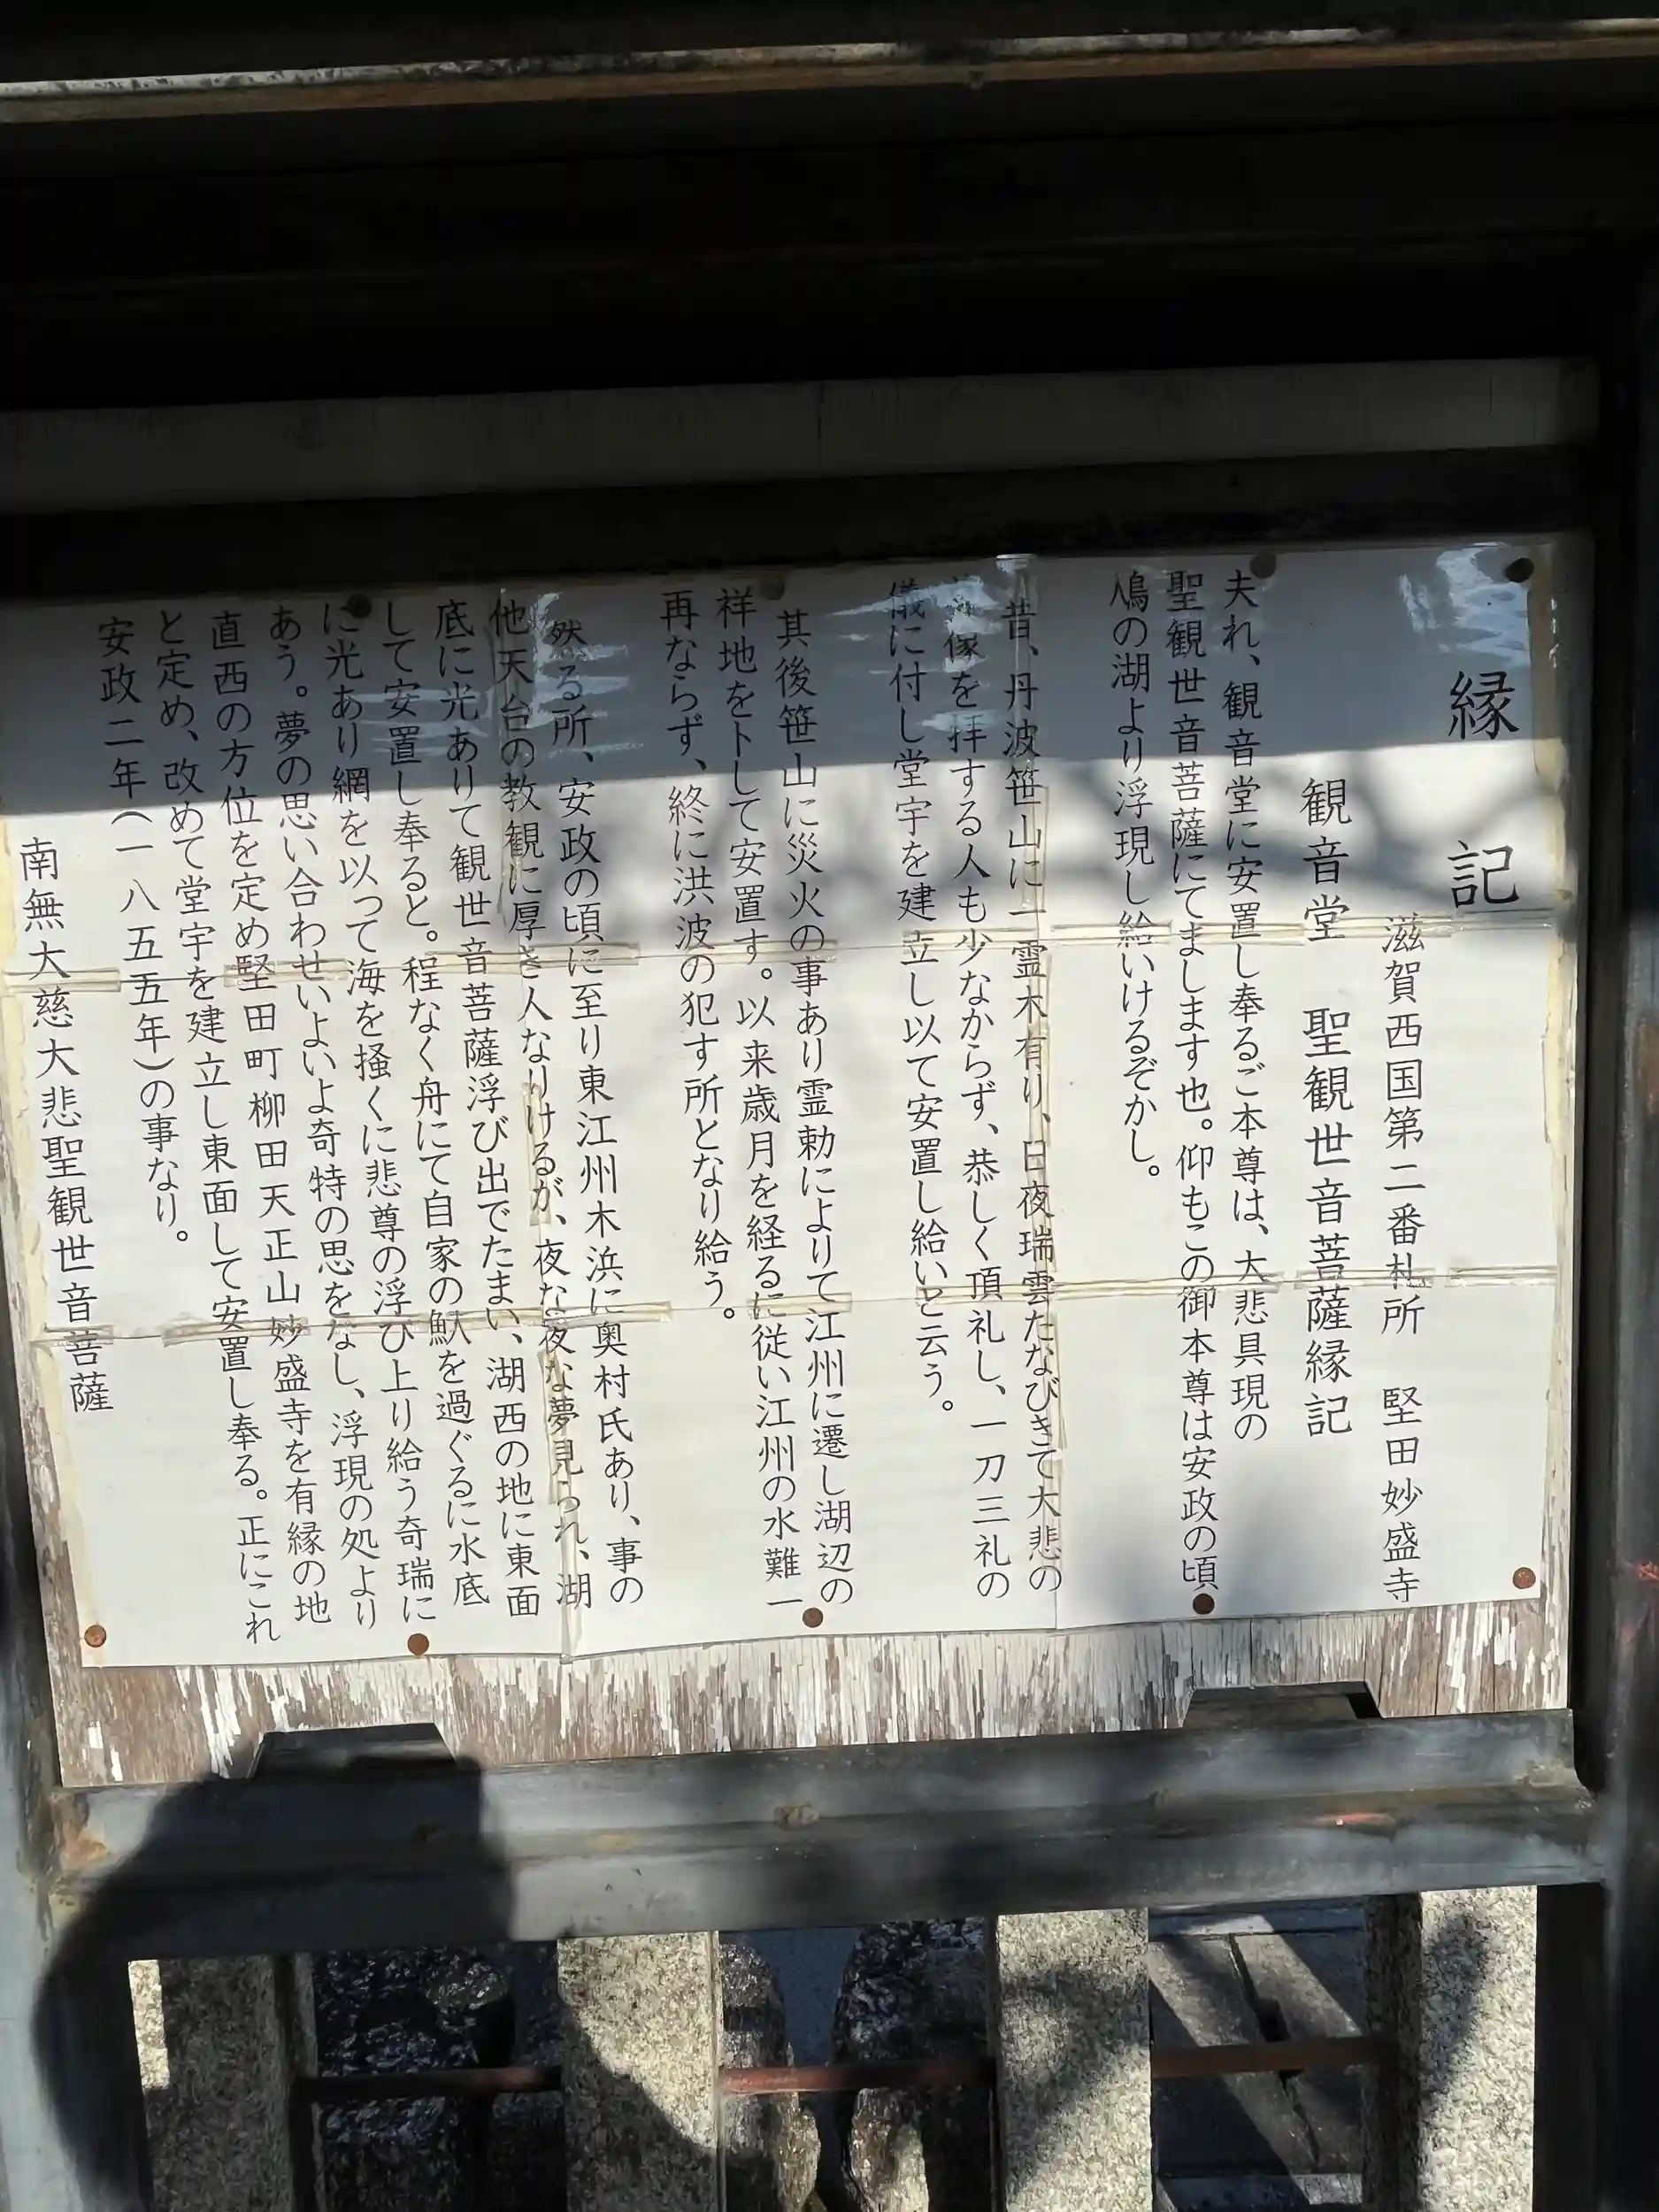 縁記
滋賀西国第二番札所　堅田妙盛寺
観音堂　聖観世音菩薩縁記
夫れ、観音堂に安置し奉るご本尊は、大悲具現の
聖観世音菩薩にてまします也。仰もこの御本尊は安政の頃
鳰の湖より浮現し給いけるぞかし。
昔、丹波笹山に一霊木有り、日夜瑞雲たなびきて大悲の
像を拝する人も少なからず、恭しく頂礼し、一刀三礼の
儀に付し堂宇を建立し以て安置し給いと云う。
其後笹山に災火の事あり霊勅によりて江州に遷し湖辺の
祥地を卜して安置す。以来歳月を経るに従い江州の水難一
再ならず、終に洪波の犯す所となり給う。
然る所、安政の頃に至り東江州木浜に奥村氏あり、事の
他天台の教観に厚き人なりけるが、夜な夜な夢見られ、湖
底に光ありて観世音菩薩浮び出でたまい、湖西の地に東面
して安置し奉ると。程なく舟にて自家の魞を過ぐるに水底
に光あり網を以って海を掻くに悲尊の浮び上り給う奇瑞に
あう。夢の思い合わせいよいよ奇特の思をなし、浮現の処より
直西の方位を定め堅田町柳田天正山妙盛寺を有縁の地
と定め、改めて堂宇を建立し東面して安置し奉る。正にこれ
安政二年（一八五五年）の事なり。
南無大慈大悲聖観世音菩薩